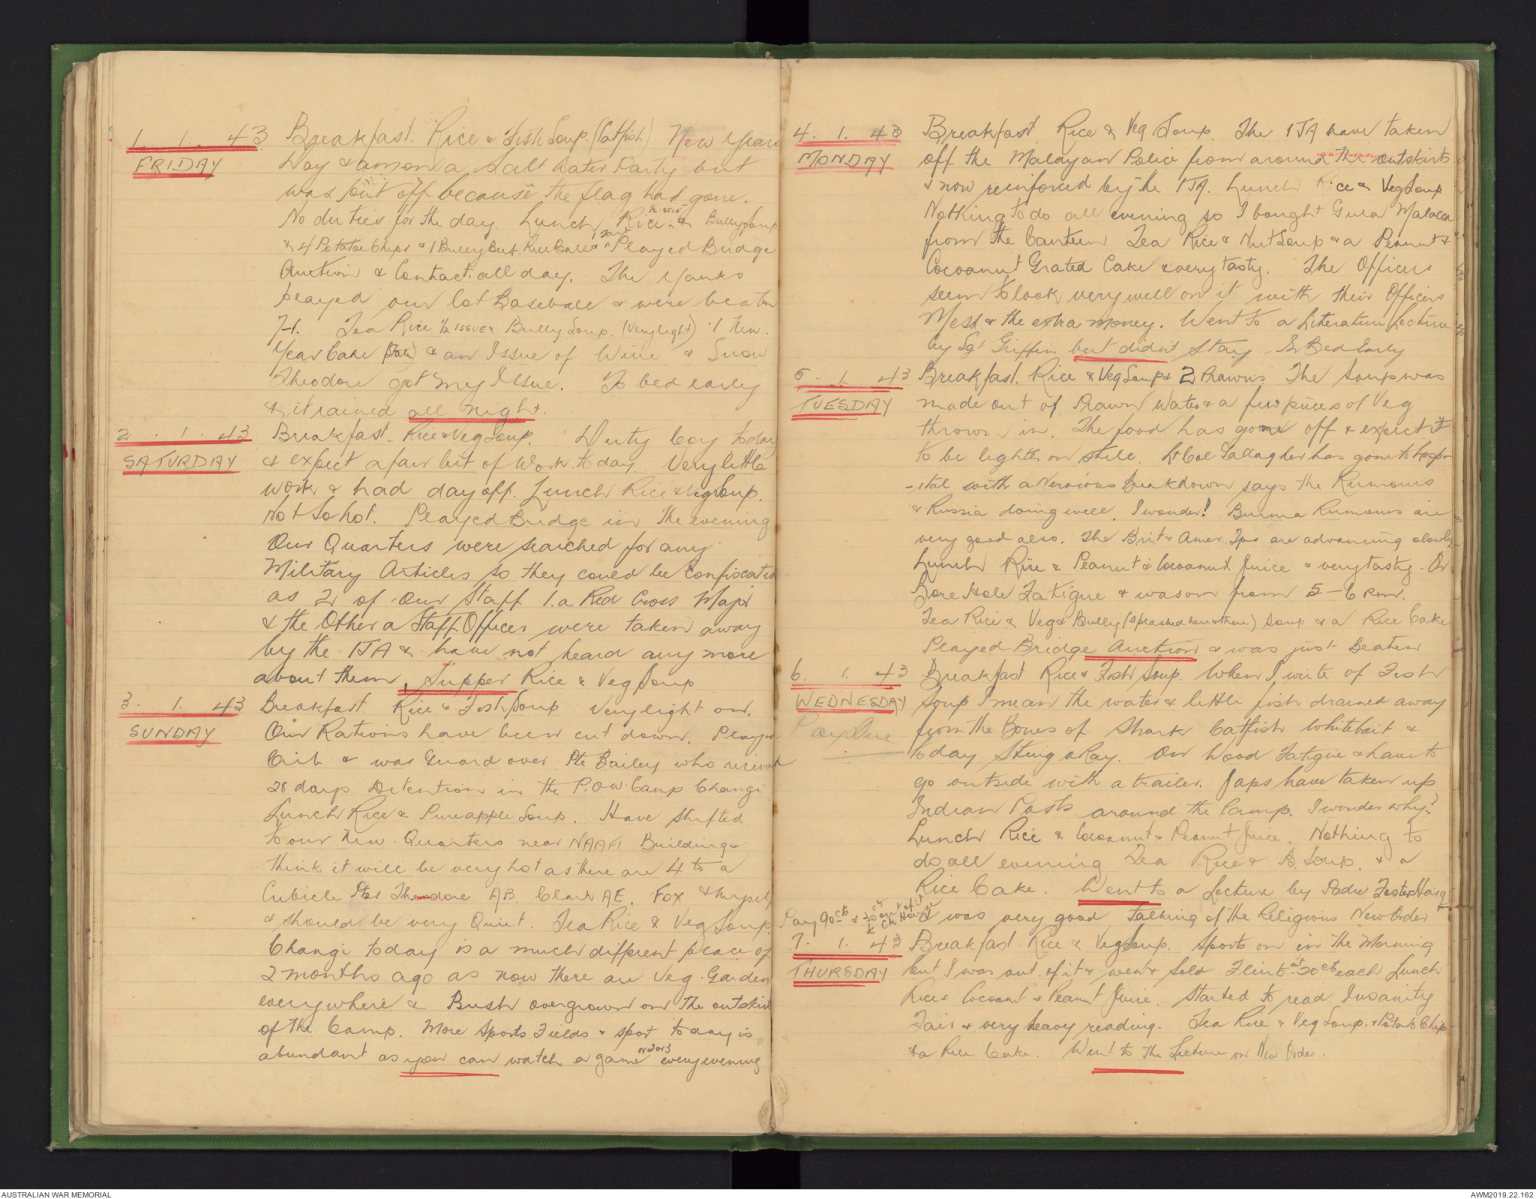 1. 1. 43
FRIDAY
Breakfast. Rice & Fish Soup. (Catfish) New Years
Day & a Salt Water Party but
was put off because the flag had gone.
No duties for the day. Lunch Rice & Bully Soup
& 4 Potatoe Chips & 1 Bully Beef Rice Ball & Played Bridge
Auction & Contact all day. The Yanks
played our lot Baseball & were beaten
7-1. Tea Rice ½ issue & Bully Soup. (Very light) 1 New
Year Cake & an Issue of Wine & Snow
Theodore got my Issue. To bed early
& it rained all night.
2. 1. 43
SATURDAY
Breakfast. Rice & Veg Soup. Duty boy today
& expect a fair bit of work to day. Very little
work & had day off. Lunch Rice & Veg Soup.
Not So hot. Played Bridge in the evening
Our Quarters were searched for any
Military Articles so they could be confiscated
as 2 of our Staff 1. a Red Cross Major
& the Other a Staff Officer were taken away
by the IJA & have not heard any more
about them. Supper Rice & Veg Soup
3. 1. 43
SUNDAY
Breakfast Rice & Fish Soup Very light on.
Our Rations have been cut down. Played
Crib & was Guard over Pte Bailey who received
28 days Detention in the P.O.W. Camp Changi
Lunch Rice & Pineapple Soup. Have shifted
to our New Quarters near NAAFI Buildings
think it will be very hot as there are 4 to a
Cubicle Ptes Theodore AB Clark AE. Fox &
& should be very Quiet. Tea Rice & Veg Soup,
Changi today is a much different place of
2 months ago as now there are Veg. Gardens
everywhere & Bush overgrown on the outskirts
of the Camp. More Sports Fields & sport today is
abundant as you can watch a game or 2 or 3 every evening
4. 1. 43
MONDAY
Breakfast. Rice & Veg Soup. The IJA have taken
off the Malayan Police from around the outskirts
& now reinforced by the IJA. Lunch Rice & Veg Soup
Nothing to do all evening so I bought Gula Malaca
from the Canteen Tea Rice & Nut Soup & a Peanut &
Cocoanut Grated Cake & very tasty. The Officers
seem to look very well on it with their Officers
Mess & the extra money. Went to a Literature Lecture
by Sgt Griffin but didn't stay In Bed Early
5. 1. 43
TUESDAY
Breakfast. Rice & Veg Soup & 2 Prawns The Soup was
made out of Prawn Water & a few pieces of Veg
thrown in. The food has gone off & expect it
to be lighter on still. Lt Col Gallagher has gone to hosp-
-ital with a Nervous breakdown says the Rumours
& Russia doing well. I wonder! Burma Rumours are
very good also. The Brit & Amer. Tps are advancing slowly
Lunch Rice & Peanut & Cocoanut Juice & very tasty. On
Bore Hole Fatigue & was on from 5-6 P.M.
Tea Rice & Veg & Bully (splashed here & there) Soup & a Rice Cake
Played Bridge Auction & was just Beaten
6. 1. 43
WEDNESDAY
Breakfast Rice & Fish Soup. When I write of Fish
Soup I mean the water & little fish drained away
from the Bones of Shark Catfish Whitebait &
today Sting a Ray. On Wood Fatigue & have to
go outside with a trailer. Japs have taken up
Indian Posts around the Camp. I wonder why?
Lunch Rice & Cocoanut & Peanut Juice. Nothing to
do all evening Tea Rice & B Soup. & a
Rice Cake. Went to a Lecture by Padre Foster Haig
& was very good Talking of the Religious New Order
7. 1. 43
THURSDAY
Breakfast. Rice & Veg Soup. Sports on in the Morning
but I was out of it & went & sold Flints at 20 cts each Lunch
Rice & Cocoanut & Peanut Juice. Started to read Insanity
Fair & very heavy reading. Tea Rice & Veg Soup. & Potato Chips
& a Rice Cake. Went to the Lecture on New Order.
AUSTRALIAN WAR MEMORIAL
AWM2019.22.162